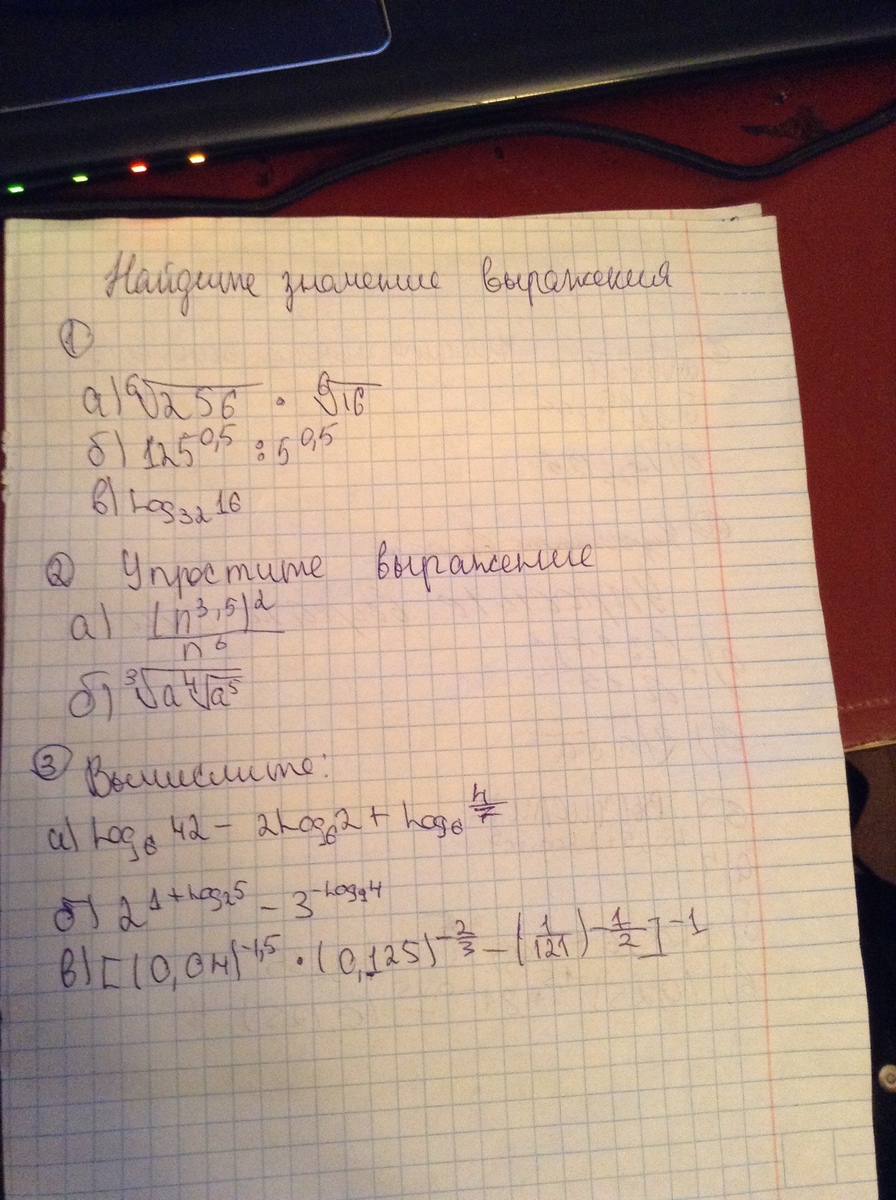 Найдите значение выражения
①
а) ⁶√256 · ⁶√16
б) 125^0,5 : 5^0,5
в) Log₃₂ 16
② Упростите выражение
а) (n^3,5)^2 / n^6
б) ³√(a ⁴√a⁵)
③ Вычислите:
а) Log₆ 42 - 2Log₆ 2 + Log₆ 4/7
б) 2^(1+Log₂5) - 3^(-Log₉4)
в) [(0,04)^-1,5 · (0,125)^(-2/3) - (1/121)^(-1/2)]^-1